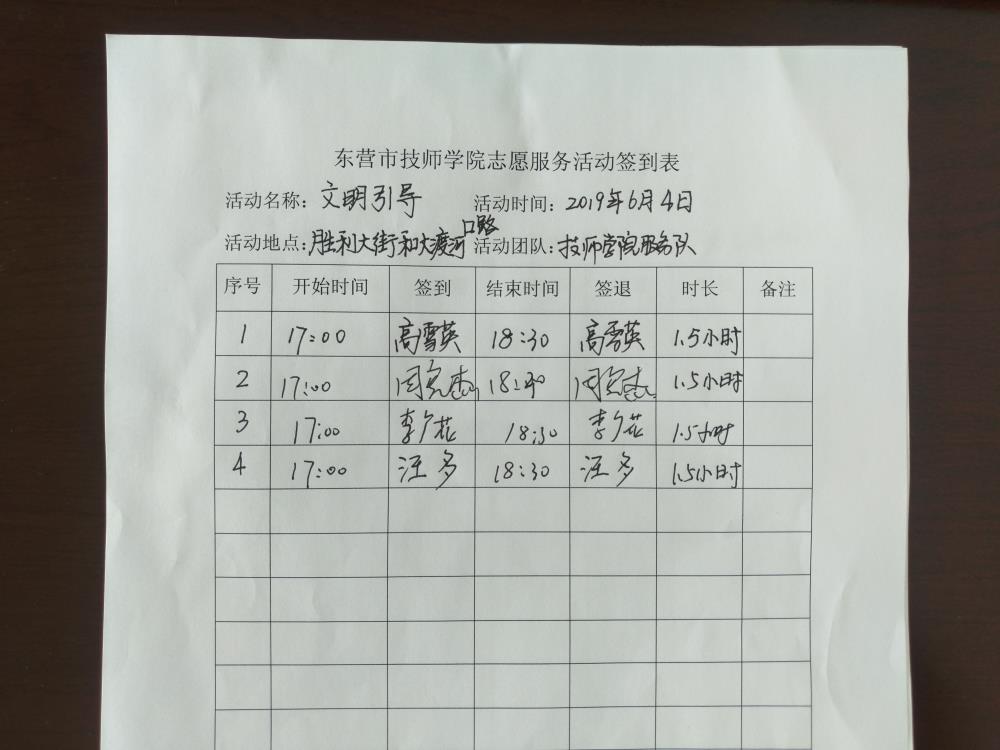 东营市技师学院志愿服务活动签到表
活动名称：文明引导 活动时间：2019年6月4日
活动地点：胜利大街和大渡河路口 活动团队：技师学院服务队
序号 开始时间 签到 结束时间 签退 时长 备注
1 17:00 高雪英 18:30 高雪英 1.5小时
2 17:00 18:30 1.5小时
3 17:00 李广花 18:30 李广花 1.5小时
4 17:00 汪多 18:30 汪多 1.5小时